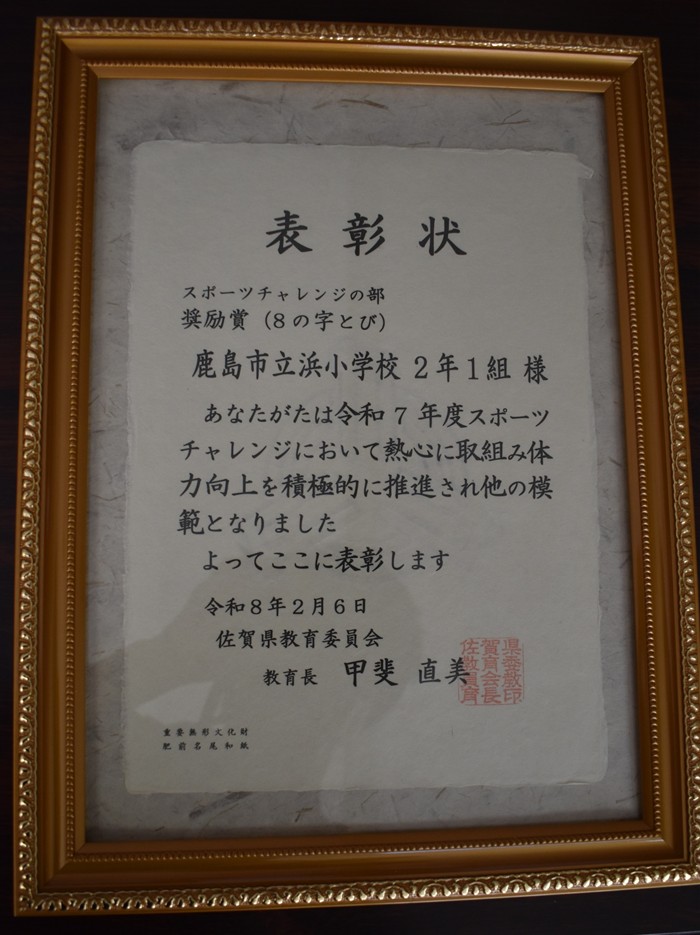 表彰状
スポーツチャレンジの部
奨励賞（８の字とび）
鹿島市立浜小学校 ２年１組 様
あなたがたは令和７年度スポーツ
チャレンジにおいて熱心に取組み体
力向上を積極的に推進され他の模
範となりました
よってここに表彰します
令和８年２月６日
佐賀県教育委員会
教育長 甲斐 直美
重要無形文化財
肥前名尾和紙